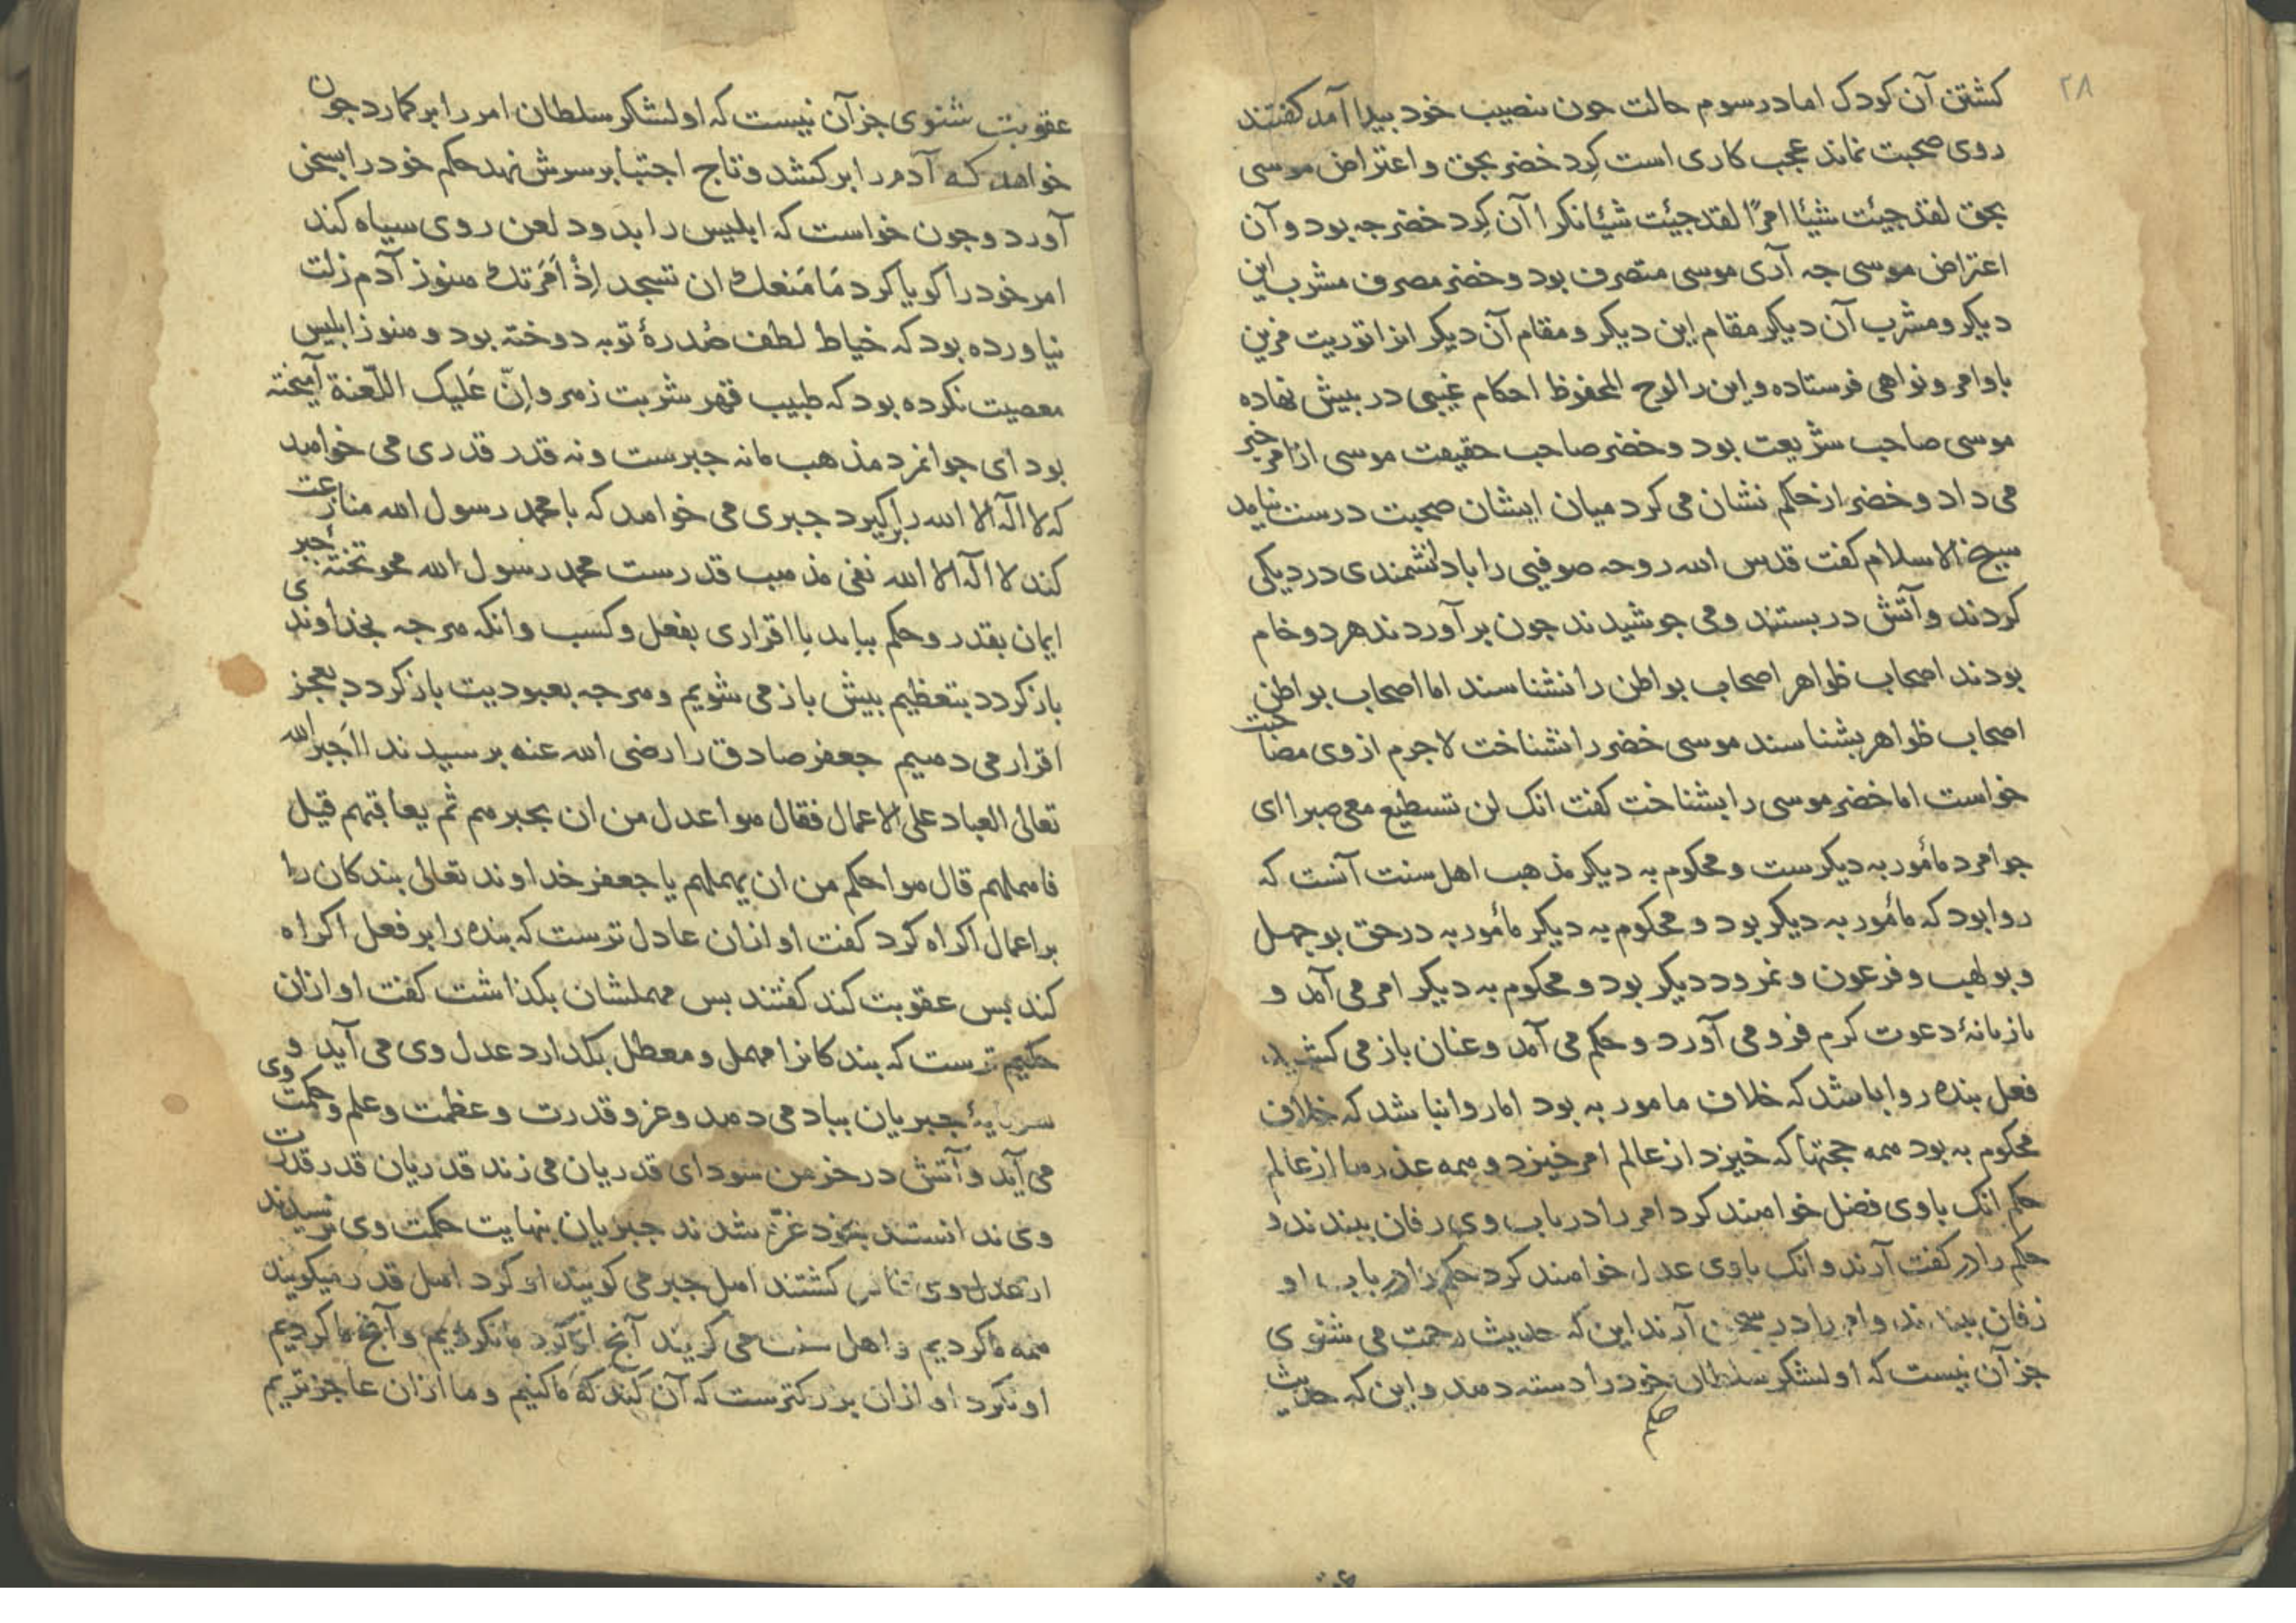 ۲۸
کشتن آن کودک اما در سوم حالت چون نصیب خود بیدا آمد کفتند
روی صحبت نماند عجب کاری است کرد خضر بحق و اعتراض موسی
بحق لقد جیئت شیئا امرًا لقد جیئت شیئا نکرا آن کرد خضر جه بود و آن
اعتراض موسی جه آری موسی متصرف بود و خضر مصرف مشرب این
دیکر و مشرب آن دیکر مقام این دیکر و مقام آن دیکر انرا توریت مزین
باوامر و نواهی فرستاده و این را لوح المحفوظ احکام غیبی در بیش نهاده
موسی صاحب شریعت بود و خضر صاحب حقیقت موسی از امر خبر
می داد و خضر از حکم نشان می کرد میان ایشان صحبت درست نیامد
شیخ الاسلام کفت قدس الله روحه صوفیی را با دانشمندی در دیکی
کردند و آتش در بستند و می جوشیدند جون بر آوردند هر دو خام
بودند اصحاب ظواهر اصحاب بواطن را نشناسند اما اصحاب بواطن
اصحاب ظواهر بشناسند موسی خضر را نشناخت لاجرم از وی مصاحبت
خواست اما خضر موسی را بشناخت کفت انک لن تسطیع معی صبرا ای
جوامرد مأمور به دیکرست و محکوم به دیکر مذهب اهل سنت آنست که
روا بود که مأمور به دیکر بود و محکوم به دیکر مأمور به در حق بو جهل
و بو لهب و فرعون و نمرود دیکر بود و محکوم به دیکر امر می آمد و
تازیانهٔ دعوت کرم فرو می آورد و حکم می آمد و عنان باز می کشید
فعل بنده روا باشد که خلاف مامور به بود اما روا نباشد که خلاف
محکوم به بود همه حجتها که خیزد از عالم امر خیزد و همه عذرها از عالم
حکم انک باوی فضل خواهند کرد امر را در باب وی زفان ببندند و
حکم را در کفت آرند و انک باوی عدل خواهند کرد حکم را در باب او
زفان ببندند و امر را در سخن آرند این که حدیث رحمت می شنوی
جز آن نیست که او لشکر سلطان خود را دسته دهد و این که حدیث
حکم
عقوبت شنوی جز آن نیست که او لشکر سلطان امر را بر کمارد جون
خواهد که آدم را بر کشد و تاج اجتبا بر سرش نهد حکم خود را بسخن
آورد و جون خواست که ابلیس را بدود لعن روی سیاه کند
امر خود را کویا کرد مَا مَنعک ان تسجد اِذْ اَمَرتک هنوز آدم زلت
نیاورده بود که خیاط لطف صُدرهٔ توبه دوخته بود و هنوز ابلیس
معصیت نکرده بود که طبیب قهر شربت زهر و اِنّ عَلیک اللّعنة آمیخته
بود ای جوانمرد مذهب ما نه جبرست و نه قدر قدری می خواهد
که لا اله الا الله را برکیرد جبری می خواهد که با محمد رسول الله منازعت
کند لا اله الا الله نفی مذهب قدرست محمد رسول الله محو تختهٔ جبر
ایمان بقدر و حکم بباید با اقراری بفعل و کسب و انکه هر جه بخداوندی
باز کردد بتعظیم بیش باز می شویم و هر جه بعبودیت باز کردد بعجز
اقرار می دهیم جعفر صادق را رضی الله عنه برسیدند ااَجبر الله
تعالی العباد علی الاعمال فقال هوا عدل من ان یجبرهم ثم یعاقبهم قیل
فاهملهم قال هوا حکم من ان یهملهم یا جعفر خداوند تعالی بندکان را
بر اعمال اکراه کرد کفت او ازان عادل ترست که بنده را بر فعل اکراه
کند بس عقوبت کند کفتند بس مهملشان بکذاشت کفت او ازان
حکیم ترست که بندکانرا مهمل و معطل بکدارد عدل وی می آید و
سرمایهٔ جبریان بباد می دهد و عز و قدرت و عظمت و علم و حکمت وی
می آید و آتش در خرمن سودای قدریان می زند قدریان قدر قدرت
وی ندانستند بخود غرّه شدند جبریان بنهایت حکمت وی نرسیدند
از عدل وی کشتند اهل جبر می کویند او کرد اهل قدر میکویند
همه ما کردیم و اهل سنت می کویند آنج او کرد ما نکردیم و آنج ما کردیم
او نکرد او ازان بزرکترست که آن کند که ما کنیم و ما ازان عاجزتریم